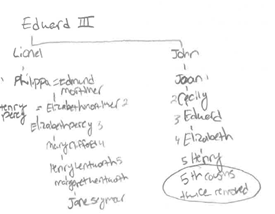 Edward III
Lionel
John
1 Philippa = Edmund
mortimer
Joan 1
Henry
percy
= Elizabeth mortimer 2
2 Cecily
Elizabeth percy 3
3 Edward
4 Elizabeth
Henry Wentworth 5
5 Henry
margaret wentworth
5th cousins
twice removed
Jane seymour